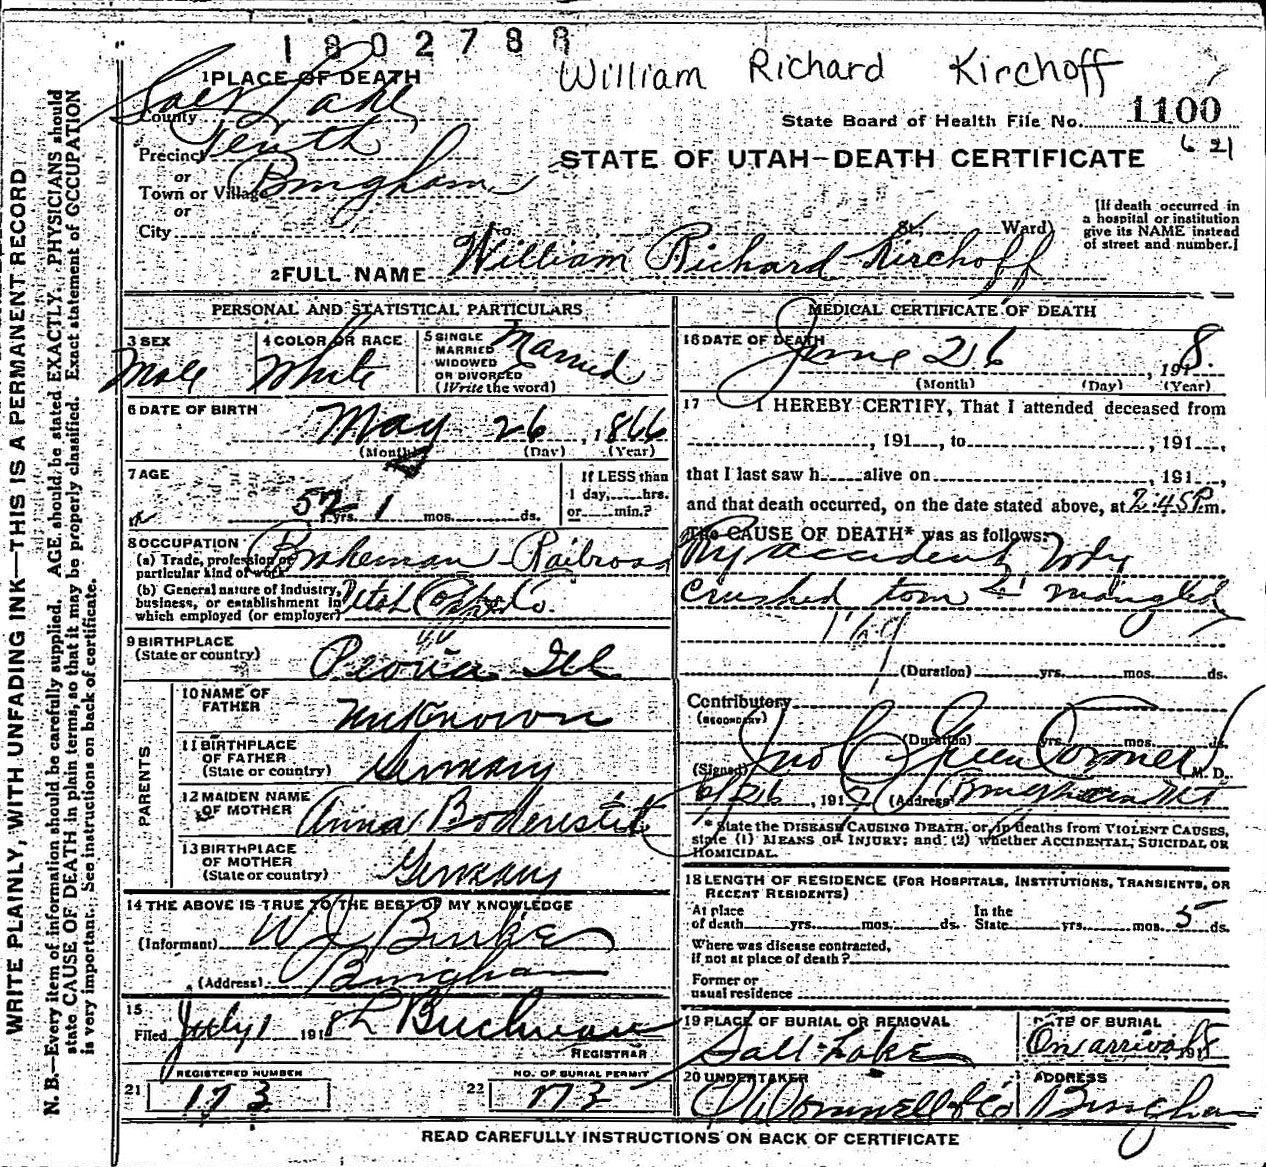 1802788
William Richard Kirchoff
1 PLACE OF DEATH
County Salt Lake
State Board of Health File No. 1100
Precinct Tenth
6 21
or
STATE OF UTAH—DEATH CERTIFICATE
Town or Village Bingham
or
City No. St. Ward)
[If death occurred in
a hospital or institution
give its NAME instead
of street and number.]
2 FULL NAME William Richard Kirchoff
PERSONAL AND STATISTICAL PARTICULARS
3 SEX
Male
4 COLOR OR RACE
White
5 SINGLE
MARRIED
WIDOWED
OR DIVORCED
(Write the word)
Married
6 DATE OF BIRTH
May 26, 1866
(Month) (Day) (Year)
7 AGE
52 yrs. 1 mos. ds.
If LESS than
1 day, hrs.
or min.?
8 OCCUPATION
(a) Trade, profession or
particular kind of work
Brakeman Railroad
(b) General nature of industry,
business, or establishment in
which employed (or employer)
Utah Copper Co.
9 BIRTHPLACE
(State or country)
Peoria Ill
PARENTS
10 NAME OF
FATHER
Unknown
11 BIRTHPLACE
OF FATHER
(State or country)
Germany
12 MAIDEN NAME
OF MOTHER
Anna
13 BIRTHPLACE
OF MOTHER
(State or country)
Germany
14 THE ABOVE IS TRUE TO THE BEST OF MY KNOWLEDGE
(Informant) W J
(Address) Bingham
15
Filed July 1 1918
REGISTRAR
REGISTERED NUMBER
21 173
NO. OF BURIAL PERMIT
22 173
MEDICAL CERTIFICATE OF DEATH
16 DATE OF DEATH
June 26, 1918
(Month) (Day) (Year)
17 I HEREBY CERTIFY, That I attended deceased from
, 191 , to , 191 ,
that I last saw h alive on , 191 ,
and that death occurred, on the date stated above, at 2:45 P.m.
The CAUSE OF DEATH* was as follows:
Ry accident Body
crushed torn & mangled
(Duration) yrs. mos. ds.
Contributory
(SECONDARY)
(Duration) yrs. mos. ds.
(Signed) Jno C Green Coroner M. D.
6/26, 191 (Address) Bingham
* State the DISEASE CAUSING DEATH, or, in deaths from VIOLENT CAUSES,
state (1) MEANS OF INJURY; and (2) whether ACCIDENTAL, SUICIDAL OR
HOMICIDAL.
18 LENGTH OF RESIDENCE (FOR HOSPITALS, INSTITUTIONS, TRANSIENTS, OR
RECENT RESIDENTS)
At place
of death yrs. mos. ds.
In the
State yrs. mos. 5 ds.
Where was disease contracted,
if not at place of death?
Former or
usual residence
19 PLACE OF BURIAL OR REMOVAL
Salt Lake
DATE OF BURIAL
On arrival 1918
20 UNDERTAKER
O'Donnell & Co
ADDRESS
Bingham
READ CAREFULLY INSTRUCTIONS ON BACK OF CERTIFICATE
WRITE PLAINLY, WITH UNFADING INK—THIS IS A PERMANENT RECORD
N. B.—Every item of information should be carefully supplied. AGE should be stated EXACTLY. PHYSICIANS should
state CAUSE OF DEATH in plain terms, so that it may be properly classified. Exact statement of OCCUPATION
is very important. See instructions on back of certificate.